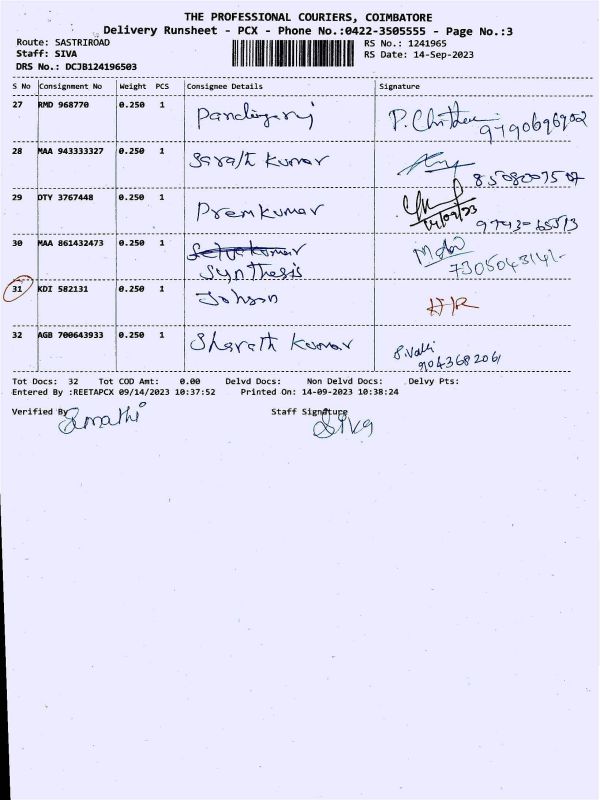 THE PROFESSIONAL COURIERS, COIMBATORE
Delivery Runsheet - PCX - Phone No.:0422-3505555 - Page No.:3
Route: SASTRIROAD RS No.: 1241965
Staff: SIVA RS Date: 14-Sep-2023
DRS No.: DCJB124196503
S No Consignment No Weight PCS Consignee Details Signature
27 RMD 968770 0.250 1 P. 9790696902
28 MAA 943333327 0.250 1 Sarath Kumar
29 DTY 3767448 0.250 1 Premkumar 14/09/23
30 MAA 861432473 0.250 1 Selvakumar
Synthesis
7305043141-
31 KDI 582131 0.250 1 Johson
32 AGB 700643933 0.250 1 Sharath Kumar S. Valli
9043682061
Tot Docs: 32 Tot COD Amt: 0.00 Delvd Docs: Non Delvd Docs: Delvy Pts:
Entered By :REETAPCX 09/14/2023 10:37:52 Printed On: 14-09-2023 10:38:24
Verified By Staff Signature
Siva